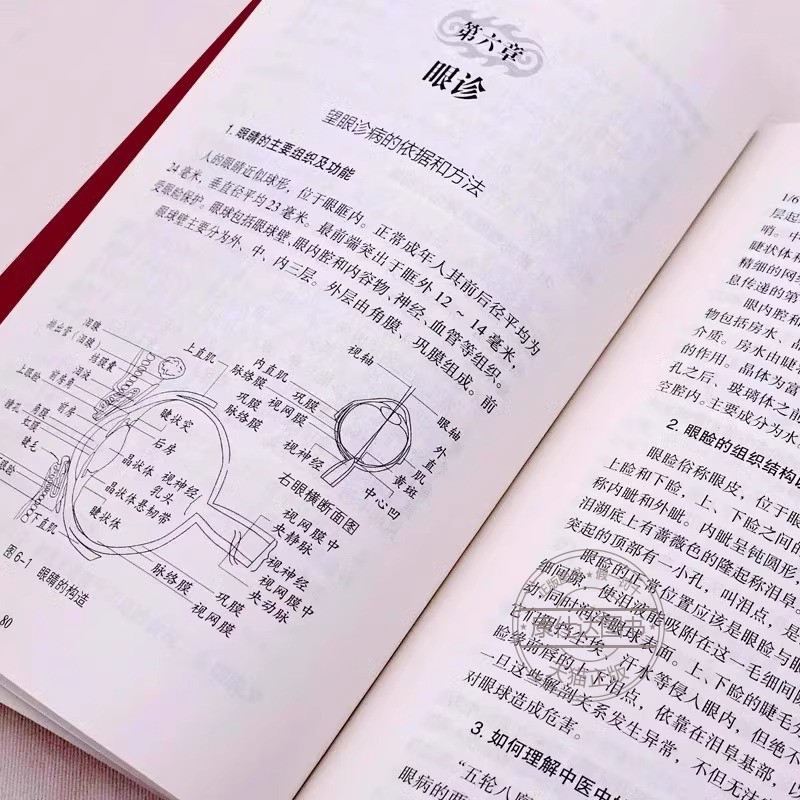 第六章
眼诊
望眼诊病的依据和方法
1. 眼睛的主要组织及功能
人的眼睛近似球形，位于眼眶内。正常成年人其前后径平均为
24毫米，垂直径平均23毫米。最前端突出于眶外12～14毫米，
受眼睑保护。眼球包括眼球壁、眼内腔和内容物、神经、血管等组织。
眼球壁主要分为外、中、内三层。外层由角膜、巩膜组成。前
泪腺
排出管（泪腺）
结膜囊
泪液
上眼睑
前房角
瞳孔
角膜
前房
虹膜
睫毛
下直肌
上直肌
睫状突
后房
晶状体
视神经
乳头
晶状体悬韧带
睫状体
脉络膜
巩膜
视网膜
内直肌
巩膜
脉络膜
视网膜
视神经
视轴
眼轴
外直肌
黄斑
中心凹
右眼横断面图
视网膜中
央静脉
视神经
视网膜中
央动脉
脉络膜
巩膜
视网膜
图6-1 眼睛的构造
80
1/6
层起
嗜。中
睫状体和
精细的网络
息传递的第
眼内腔和
物包括房水、晶
介质。房水由睫
的作用。晶体为富
孔之后、玻璃体之前
空腔内。主要成分为水
2. 眼睑的组织结构
眼睑俗称眼皮，位于眼
上睑和下睑，上、下睑之间的
称内眦和外眦。内眦呈钝圆形，
泪湖底上有蔷薇色的隆起称泪阜。
突起的顶部有一小孔，叫泪点，是
眼睑的正常位置应该是眼睑与眼
细间隙，使泪液能吸附在这一毛细间
动同时湿润眼球表面。上、下睑的睫毛
灰尘、汗水等侵入眼内，但绝不
睑缘前唇的上、下泪点，依靠在泪阜基部，
一旦这些解剖关系发生异常，不但无法
对眼球造成危害。
3. 如何理解中医中
“五轮八廓
眼病的两
康仕达图书
天猫正版